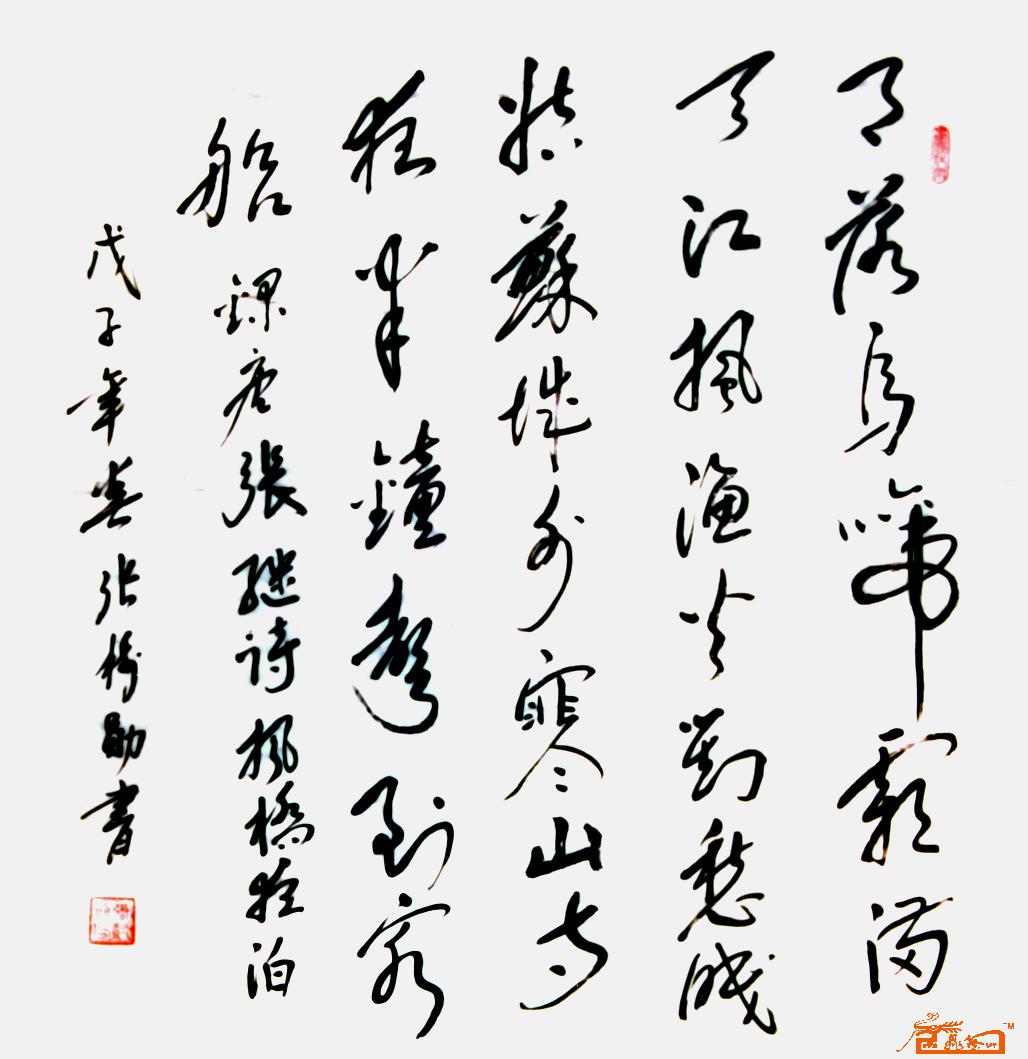 月落烏啼霜滿
天江楓漁火對愁眠
姑蘇城外寒山寺
夜半鐘聲到客
船 錄唐張继詩楓橋夜泊
戊子年春张樹勛書